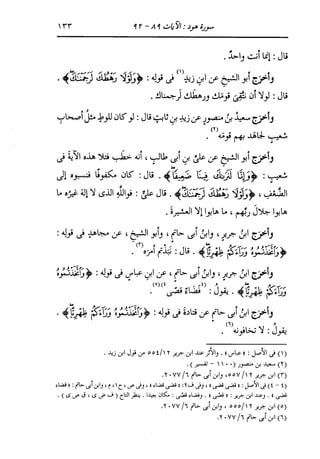 سورة هود : الآيات ٨٩ - ٩٢
١٣٣
قال : إنما أنت واحدٌ .
وأخرج أبو الشيخ عن ابن زيدٍ(١) فى قوله : ﴿ وَلَوْلَا رَهْطُكَ لَرَجَمْنَاكَ ﴾ .
قال : لولا أن نتَّقِىَ قومَك ورهطَك لرجمناك .
وأخرج سعيدُ بنُ منصورٍ عن زيدِ بنِ ثابتٍ قال : لو كان للوطٍ مثلُ أصحابِ
شعيبٍ لجاهَد بهم قومَه(٢) .
وأخرج أبو الشيخِ عن علىِّ بنِ أبى طالبٍ ، أنه خطَب فتلا هذه الآيةَ فى
شعيبٍ : ﴿ وَإِنَّا لَنَرَاكَ فِينَا ضَعِيفًا ﴾ . قال : كان مكفوفًا فنسَبوه إلى
الضَّعْفِ ، ﴿ وَلَوْلَا رَهْطُكَ لَرَجَمْنَاكَ ﴾ . قال علىٌّ : فواللهِ الذى لا إلهَ غيرُه ما
هابوا جلالَ ربِّهم ، ما هابوا إلا العشيرةَ .
وأخرج ابنُ جريرٍ ، وابنُ أبى حاتمٍ ، وأبو الشيخِ ، عن مجاهدٍ فى قوله :
﴿ وَاتَّخَذْتُمُوهُ وَرَاءَكُمْ ظِهْرِيًّا ﴾ . قال : نبَذتم أمرَه(٣) .
وأخرج ابنُ جريرٍ ، وابنُ أبى حاتمٍ ، عن ابنِ عباسٍ فى قوله : ﴿ وَاتَّخَذْتُمُوهُ
وَرَاءَكُمْ ظِهْرِيًّا ﴾ . يقولُ : (٤قضاءً قضَى٤)(٥) .
وأخرج ابنُ أبى حاتمٍ عن قتادةَ فى قوله : ﴿ وَاتَّخَذْتُمُوهُ وَرَاءَكُمْ ظِهْرِيًّا ﴾ .
يقولُ : لا تخافونه(٦) .
(١) فى الأصل : « عباس » . والأثر عند ابن جرير ١٢/ ٥٥٤ من قول ابن زيد .
(٢) سعيد بن منصور (١١٠٠ - تفسير) .
(٣) ابن جرير ١٢/ ٥٥٧، وابن أبى حاتم ٦/ ٢٠٧٧.
(٥) ابن جرير ١٢/ ٥٥٥، وابن أبى حاتم ٦/ ٢٠٧٧.
(٦) ابن أبى حاتم ٦/ ٢٠٧٧.